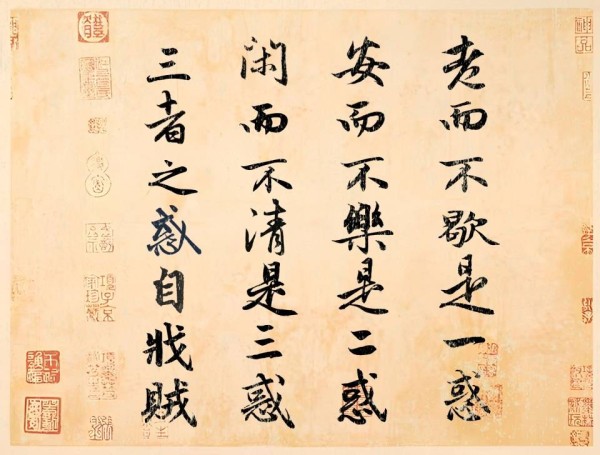 老而不歇是一惑
安而不樂是二惑
閑而不清是三惑
三者之惑自戕賊